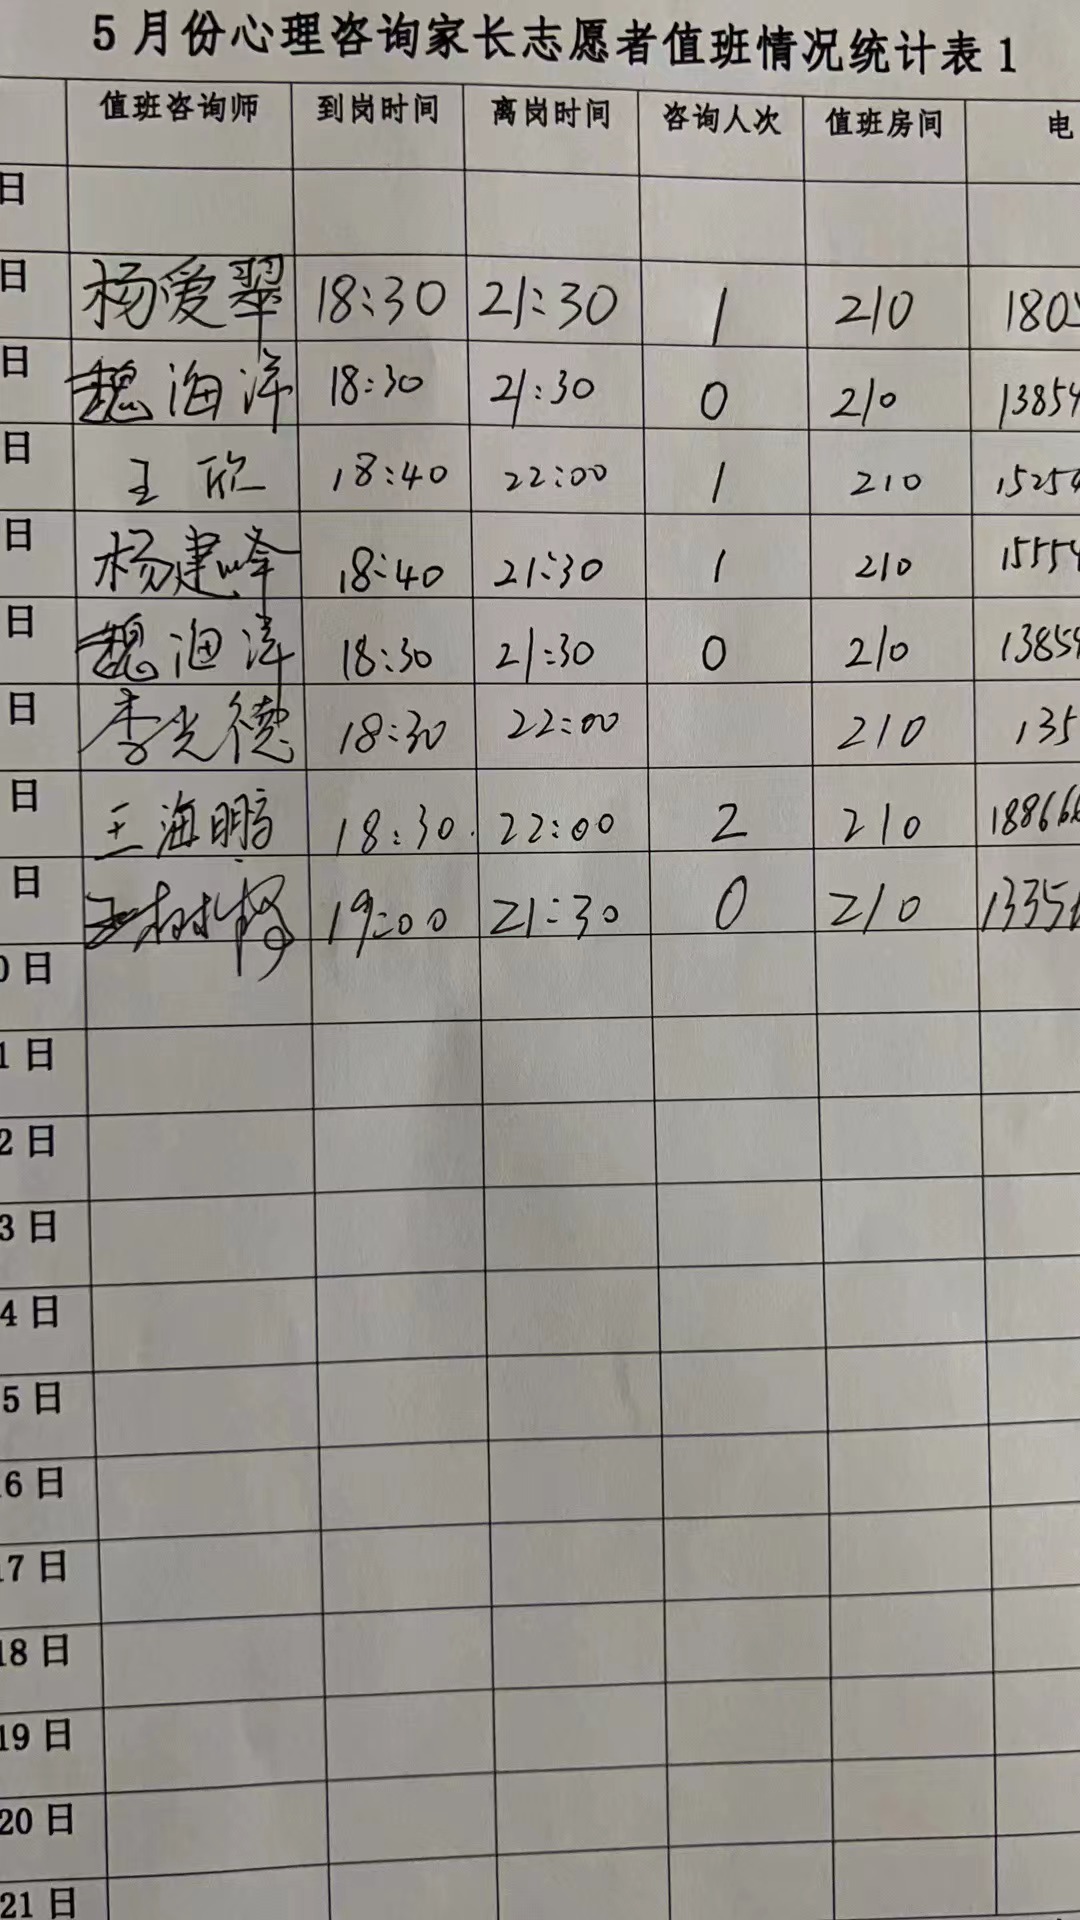 5月份心理咨询家长志愿者值班情况统计表1
值班咨询师 到岗时间 离岗时间 咨询人次 值班房间 电
日
日 杨爱翠 18:30 21:30 1 210 180
日 魏海洋 18:30 21:30 0 210 13854
日 王欣 18:40 22:00 1 210 15254
日 杨建峰 18:40 21:30 1 210 15554
日 魏海洋 18:30 21:30 0 210 13854
日 李光德 18:30 22:00 210 135
日 王海鹏 18:30 22:00 2 210 18866
日 19:00 21:30 0 210 1335
0日
1日
2日
3日
4日
5日
16日
17日
18日
19日
20日
21日